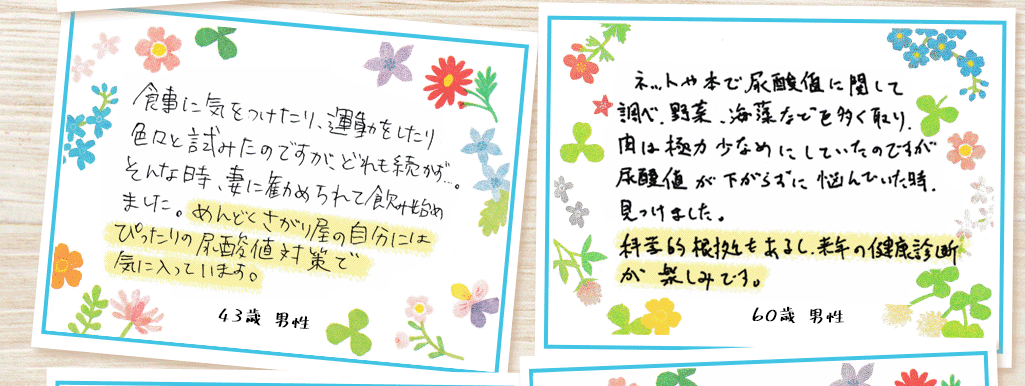 食事に気をつけたり、運動をしたり
色々と試みたのですが、どれも続かず…。
そんな時、妻に勧められて飲み始め
ました。めんどくさがり屋の自分には
ぴったりの尿酸値対策で
気に入っています。
43歳 男性
ネットや本で尿酸値に関して
調べ、野菜、海藻などを多く取り、
肉は極力少なめにしていたのですが
尿酸値が下がらずに悩んでいた時、
見つけました。
科学的根拠もあるし、来年の健康診断
が楽しみです。
60歳 男性